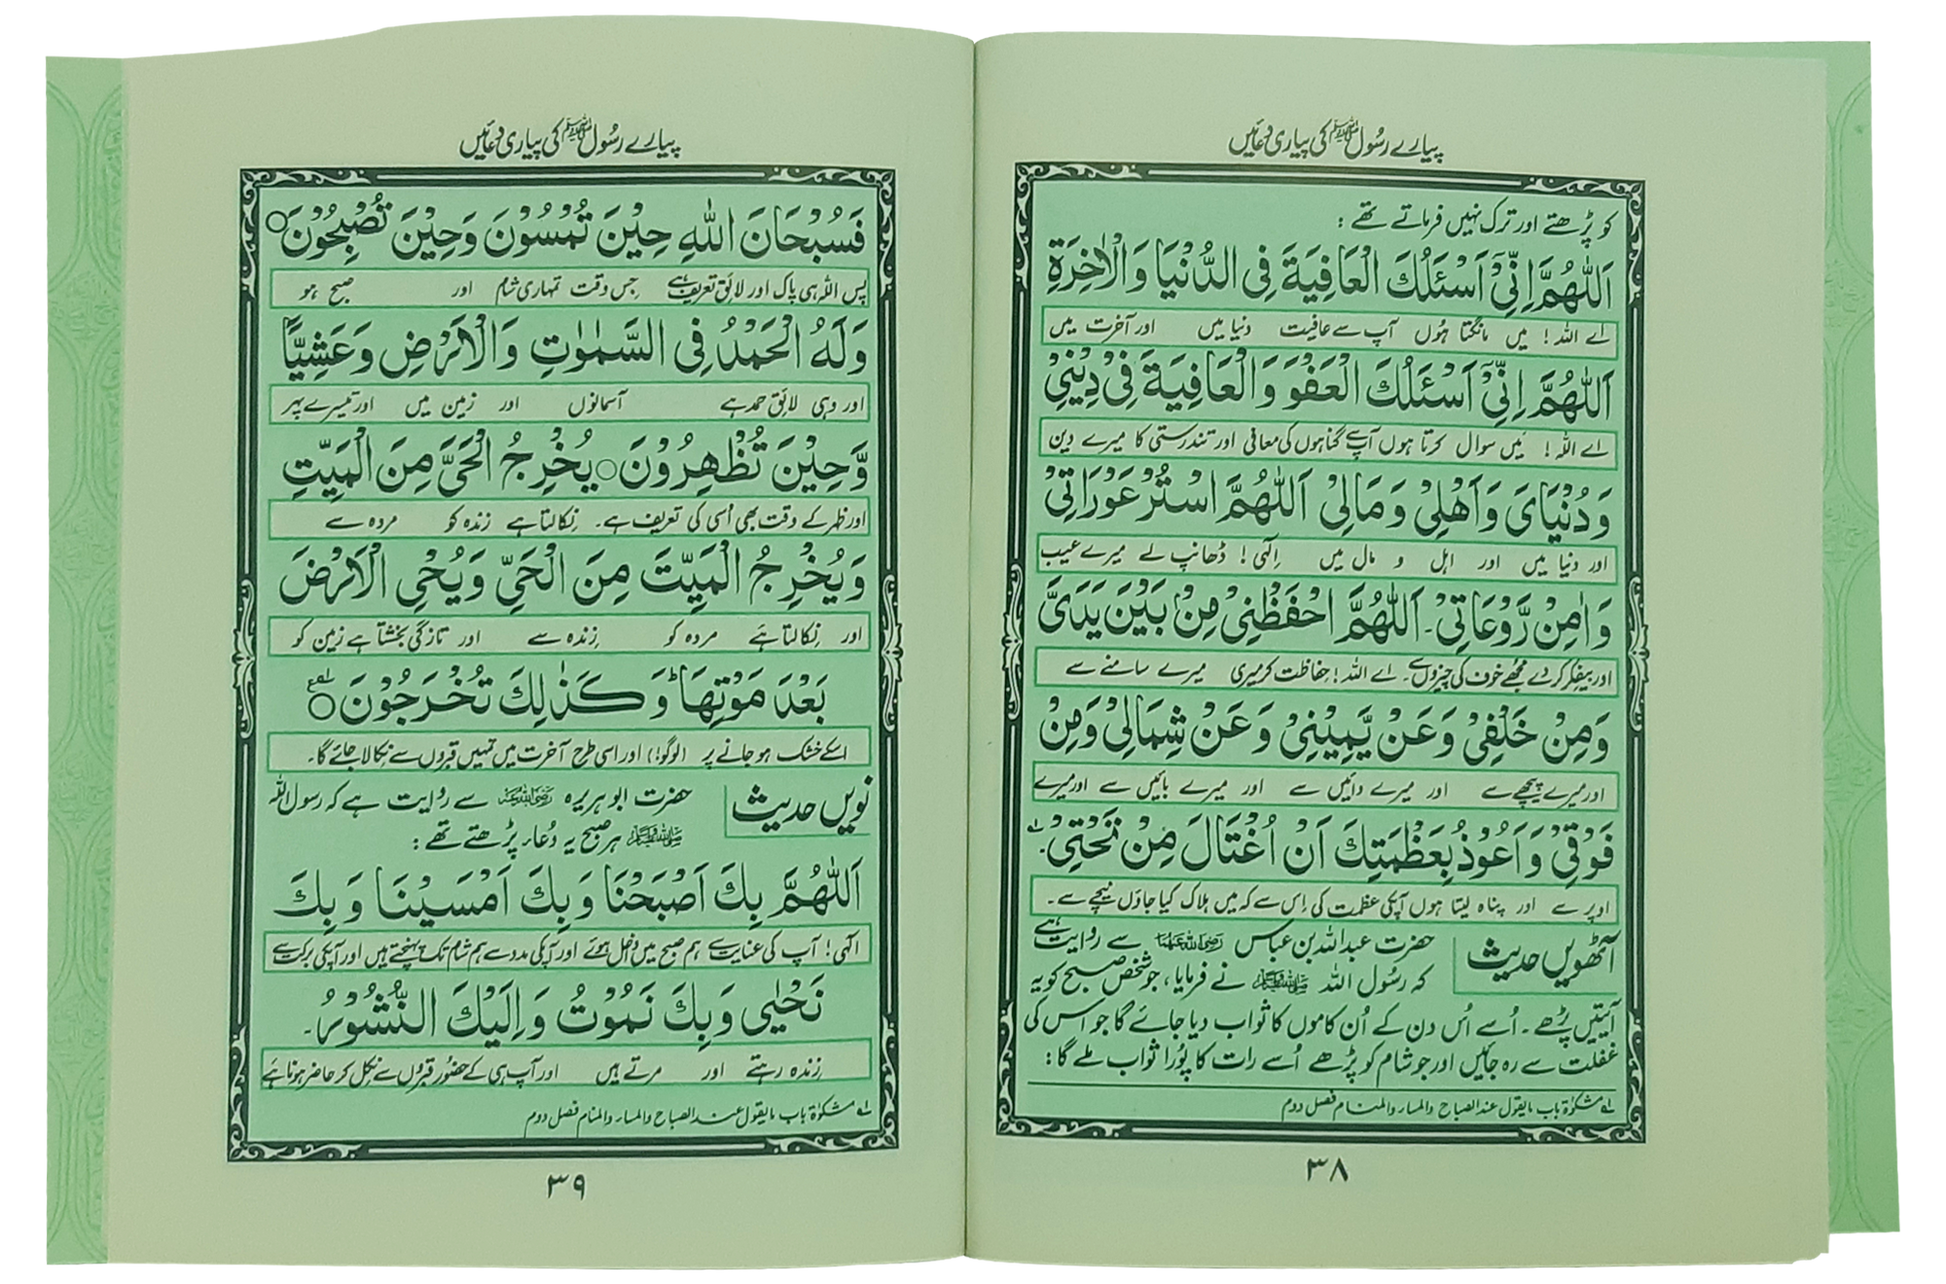 پیارے رسُول ﷺ کی پیاری دعائیں
کو پڑھتے اور ترک نہیں فرماتے تھے :
اَللّٰهُمَّ اِنِّیْٓ اَسْئَلُكَ الْعَافِیَةَ فِی الدُّنْیَا وَالْاٰخِرَةِ
اے اللہ! میں مانگتا ہُوں آپ سے عافیت دنیا میں اور آخرت میں
اَللّٰهُمَّ اِنِّیْٓ اَسْئَلُكَ الْعَفْوَ وَالْعَافِیَةَ فِیْ دِیْنِیْ
اے اللہ! میں سوال کرتا ہوں آپ سے گناہوں کی معافی اور تندرستی کا میرے دین
وَدُنْیَایَ وَاَهْلِیْ وَمَالِیْ اَللّٰهُمَّ اسْتُرْ عَوْرَاتِیْ
اور دنیا میں اور اہل و مال میں اِلٰہی! ڈھانپ لے میرے عیب
وَاٰمِنْ رَّوْعَاتِیْ۔ اَللّٰهُمَّ احْفَظْنِیْ مِنْ بَیْنَ یَدَیَّ
اور بیفکر کر دے مجھے خوف کی چیزوں سے۔ اے اللہ! حفاظت کر میری میرے سامنے سے
وَمِنْ خَلْفِیْ وَعَنْ یَّمِیْنِیْ وَعَنْ شِمَالِیْ وَمِنْ
اور میرے پیچھے سے اور میرے دائیں سے اور میرے بائیں سے اور میرے
فَوْقِیْ وَاَعُوْذُ بِعَظْمَتِكَ اَنْ اُغْتَالَ مِنْ تَحْتِیْ۔ لے
اوپر سے اور پناہ لیتا ہوں آپکی عظمت کی اِس سے کہ میں ہلاک کیا جاؤں نیچے سے۔
آٹھویں حدیث حضرت عبداللہ بن عباس رضی اللہ عنہما سے روایت ہے
کہ رسُول اللہ ﷺ نے فرمایا، جو شخص صبح کو یہ
آیتیں پڑھے۔ اُسے اُس دن کے اُن کاموں کا ثواب دیا جائے گا جو اس کی
غفلت سے رہ جائیں اور جو شام کو پڑھے اُسے رات کا پُورا ثواب ملے گا :
لے مشکوٰۃ باب مایقول عند الصباح والمساء والمنام فصل دوم
۳۸
پیارے رسُول ﷺ کی پیاری دعائیں
فَسُبْحَانَ اللّٰهِ حِیْنَ تُمْسُوْنَ وَحِیْنَ تُصْبِحُوْنَ○
پس اللہ ہی پاک اور لائق تعریف ہے جس وقت تمہاری شام اور صبح ہو
وَلَهُ الْحَمْدُ فِی السَّمٰوٰتِ وَالْاَرْضِ وَعَشِیًّا
اور وہی لائق حمد ہے آسمانوں اور زمین میں اور تیسرے پہر
وَّحِیْنَ تُظْهِرُوْنَ○ یُخْرِجُ الْحَیَّ مِنَ الْمَیِّتِ
اور ظہر کے وقت بھی اُسی کی تعریف ہے۔ نِکالتا ہے زندہ کو مردہ سے
وَیُخْرِجُ الْمَیِّتَ مِنَ الْحَیِّ وَیُحْیِ الْاَرْضَ
اور نِکالتا ہے مردہ کو زندہ سے اور تازگی بخشتا ہے زمین کو
بَعْدَ مَوْتِهَا ط وَكَذٰلِكَ تُخْرَجُوْنَ○
اسکے خشک ہو جانے پر (لوگو!) اور اسی طرح آخرت میں تمہیں قبروں سے نکالا جائے گا۔
نویں حدیث حضرت ابو ہریرہ رضی اللہ عنہ سے روایت ہے کہ رسول اللہ
ﷺ ہر صبح یہ دُعاء پڑھتے تھے :
اَللّٰهُمَّ بِكَ اَصْبَحْنَا وَبِكَ اَمْسَیْنَا وَبِكَ
الٰہی! آپ کی عنایت سے ہم صبح میں داخل ہوئے اور آپکی مدد سے ہم شام تک پہنچتے ہیں اور آپکی برکت سے
نَحْیٰی وَبِكَ نَمُوْتُ وَاِلَیْكَ النُّشُوْرُ۔
زندہ رہتے اور مرتے ہیں اور آپ ہی کے حضور قبروں سے نکل کر حاضر ہونا ہے
لے مشکوٰۃ باب مایقول عند الصباح والمساء والمنام فصل دوم
۳۹